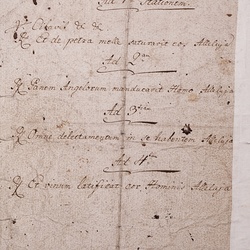 Ad 1mam Stationem.
V. Cibavit &c &c
R. Et de petra melle saturavit eos Alleluja
Ad 2am
R. Panem Angelorum manducavit Homo Alleluja
Ad 3tiam
R. Omne delectamentum in se habentem Alleluja
Ad 4tam
R. Et vinum laetificat cor Hominis Alleluja